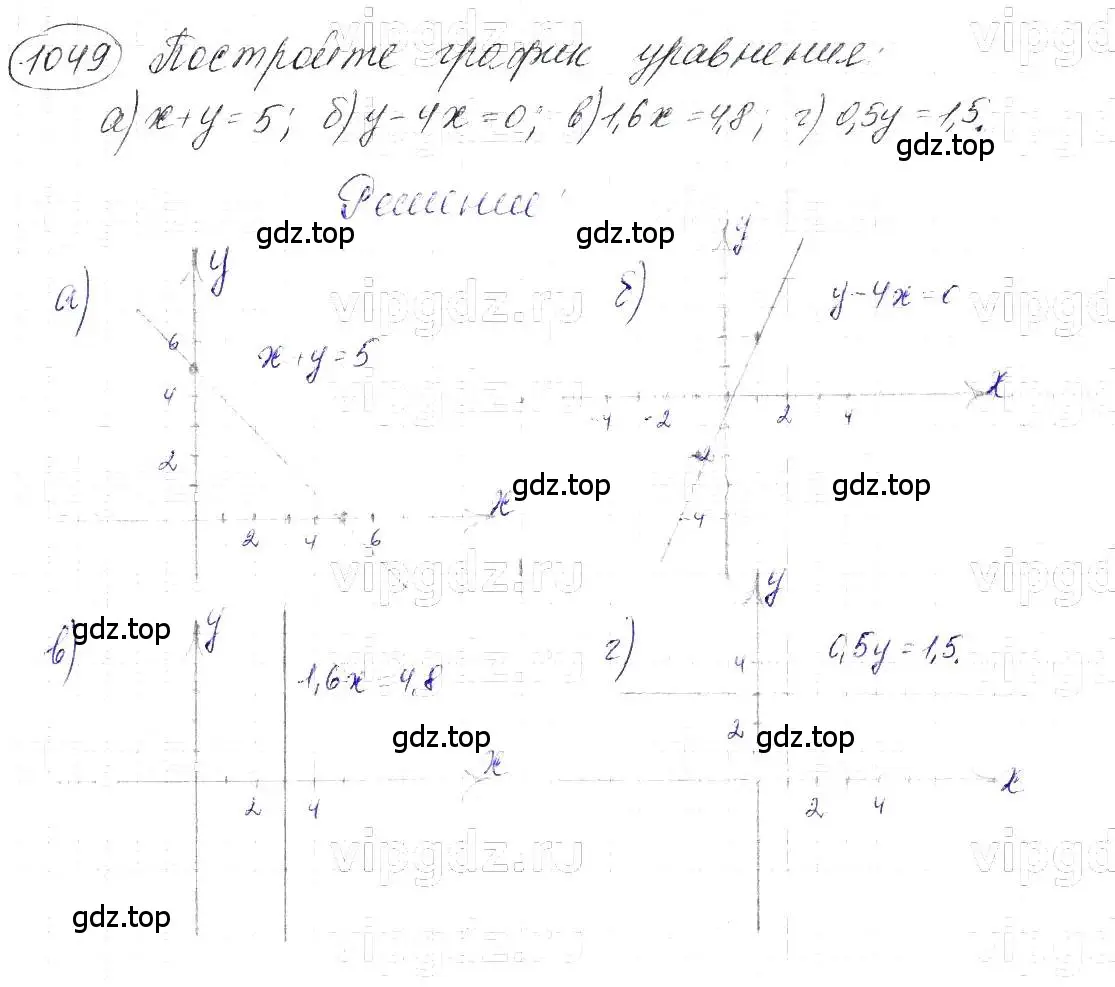 1049 Постройте график уравнения:
а) x+y=5; б) y-4x=0; в) 1,6x=4,8; г) 0,5y=1,5.
gdz.top
Решение:
gdz.top gdz.top
а) y x+y=5 б) y y-4x=0
vipgdz.ru
6
4
2
2 4 6 x
-4 -2 2 4 x
-2
-4
gdz.top gdz.top
vipgdz.ru
gdz.top
в) y 1,6x=4,8 г) y 0,5y=1,5.
vipgdz.ru
4
2
gdz.top gdz.top
2 4 x
2 4 x
vipgdz.ru
gdz.top